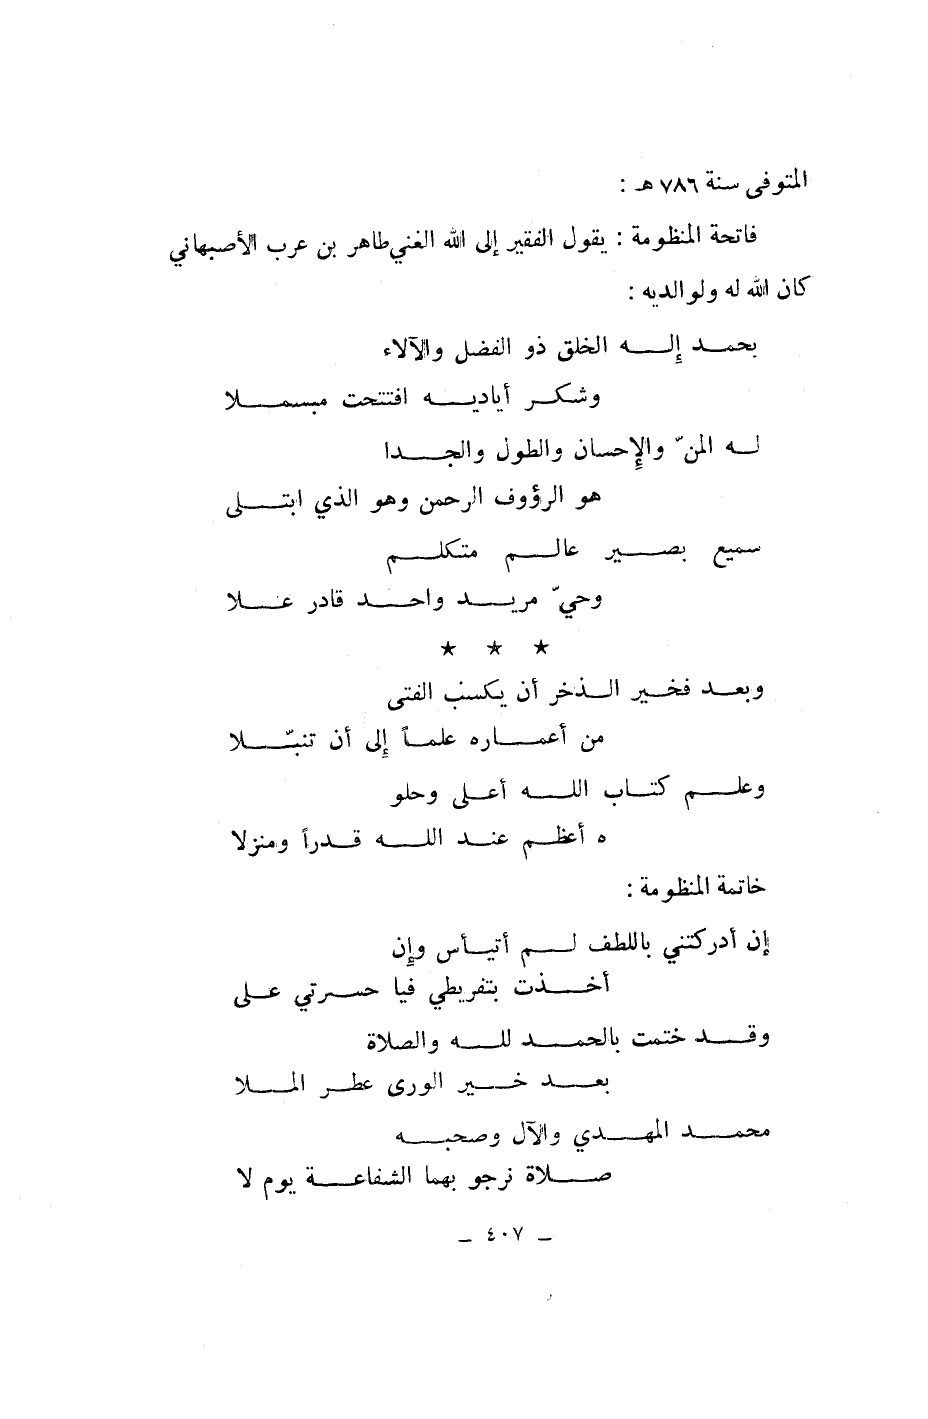 المتوفى سنة ٧٨٦ هـ :
فاتحة المنظومة : يقول الفقير إلى الله الغني طاهر بن عرب الأصبهاني
كان الله له ولوالديه :
بحمد إله الخلق ذو الفضل والآلاء
وشكر أياديه افتتحت مبسملا
له المنّ والإحسان والطول والجدا
هو الرؤوف الرحمن وهو الذي ابتلى
سميع بصير عالم متكلم
وحيّ مريد واحد قادر علا
★ ★ ★
وبعد فخير الذخر أن يكسب الفتى
من أعماره علماً إلى أن تنبّلا
وعلم كتاب الله أعلى وحلو
ه أعظم عند الله قدراً ومنزلا
خاتمة المنظومة :
إن أدركتني باللطف لم أتيأس وإن
أخذت بتفريطي فيا حسرتي على
وقد ختمت بالحمد لله والصلاة
بعد خير الورى عطر الملا
محمد المهدي والآل وصحبه
صلاة نرجو بهما الشفاعة يوم لا
– ٤٠٧ –